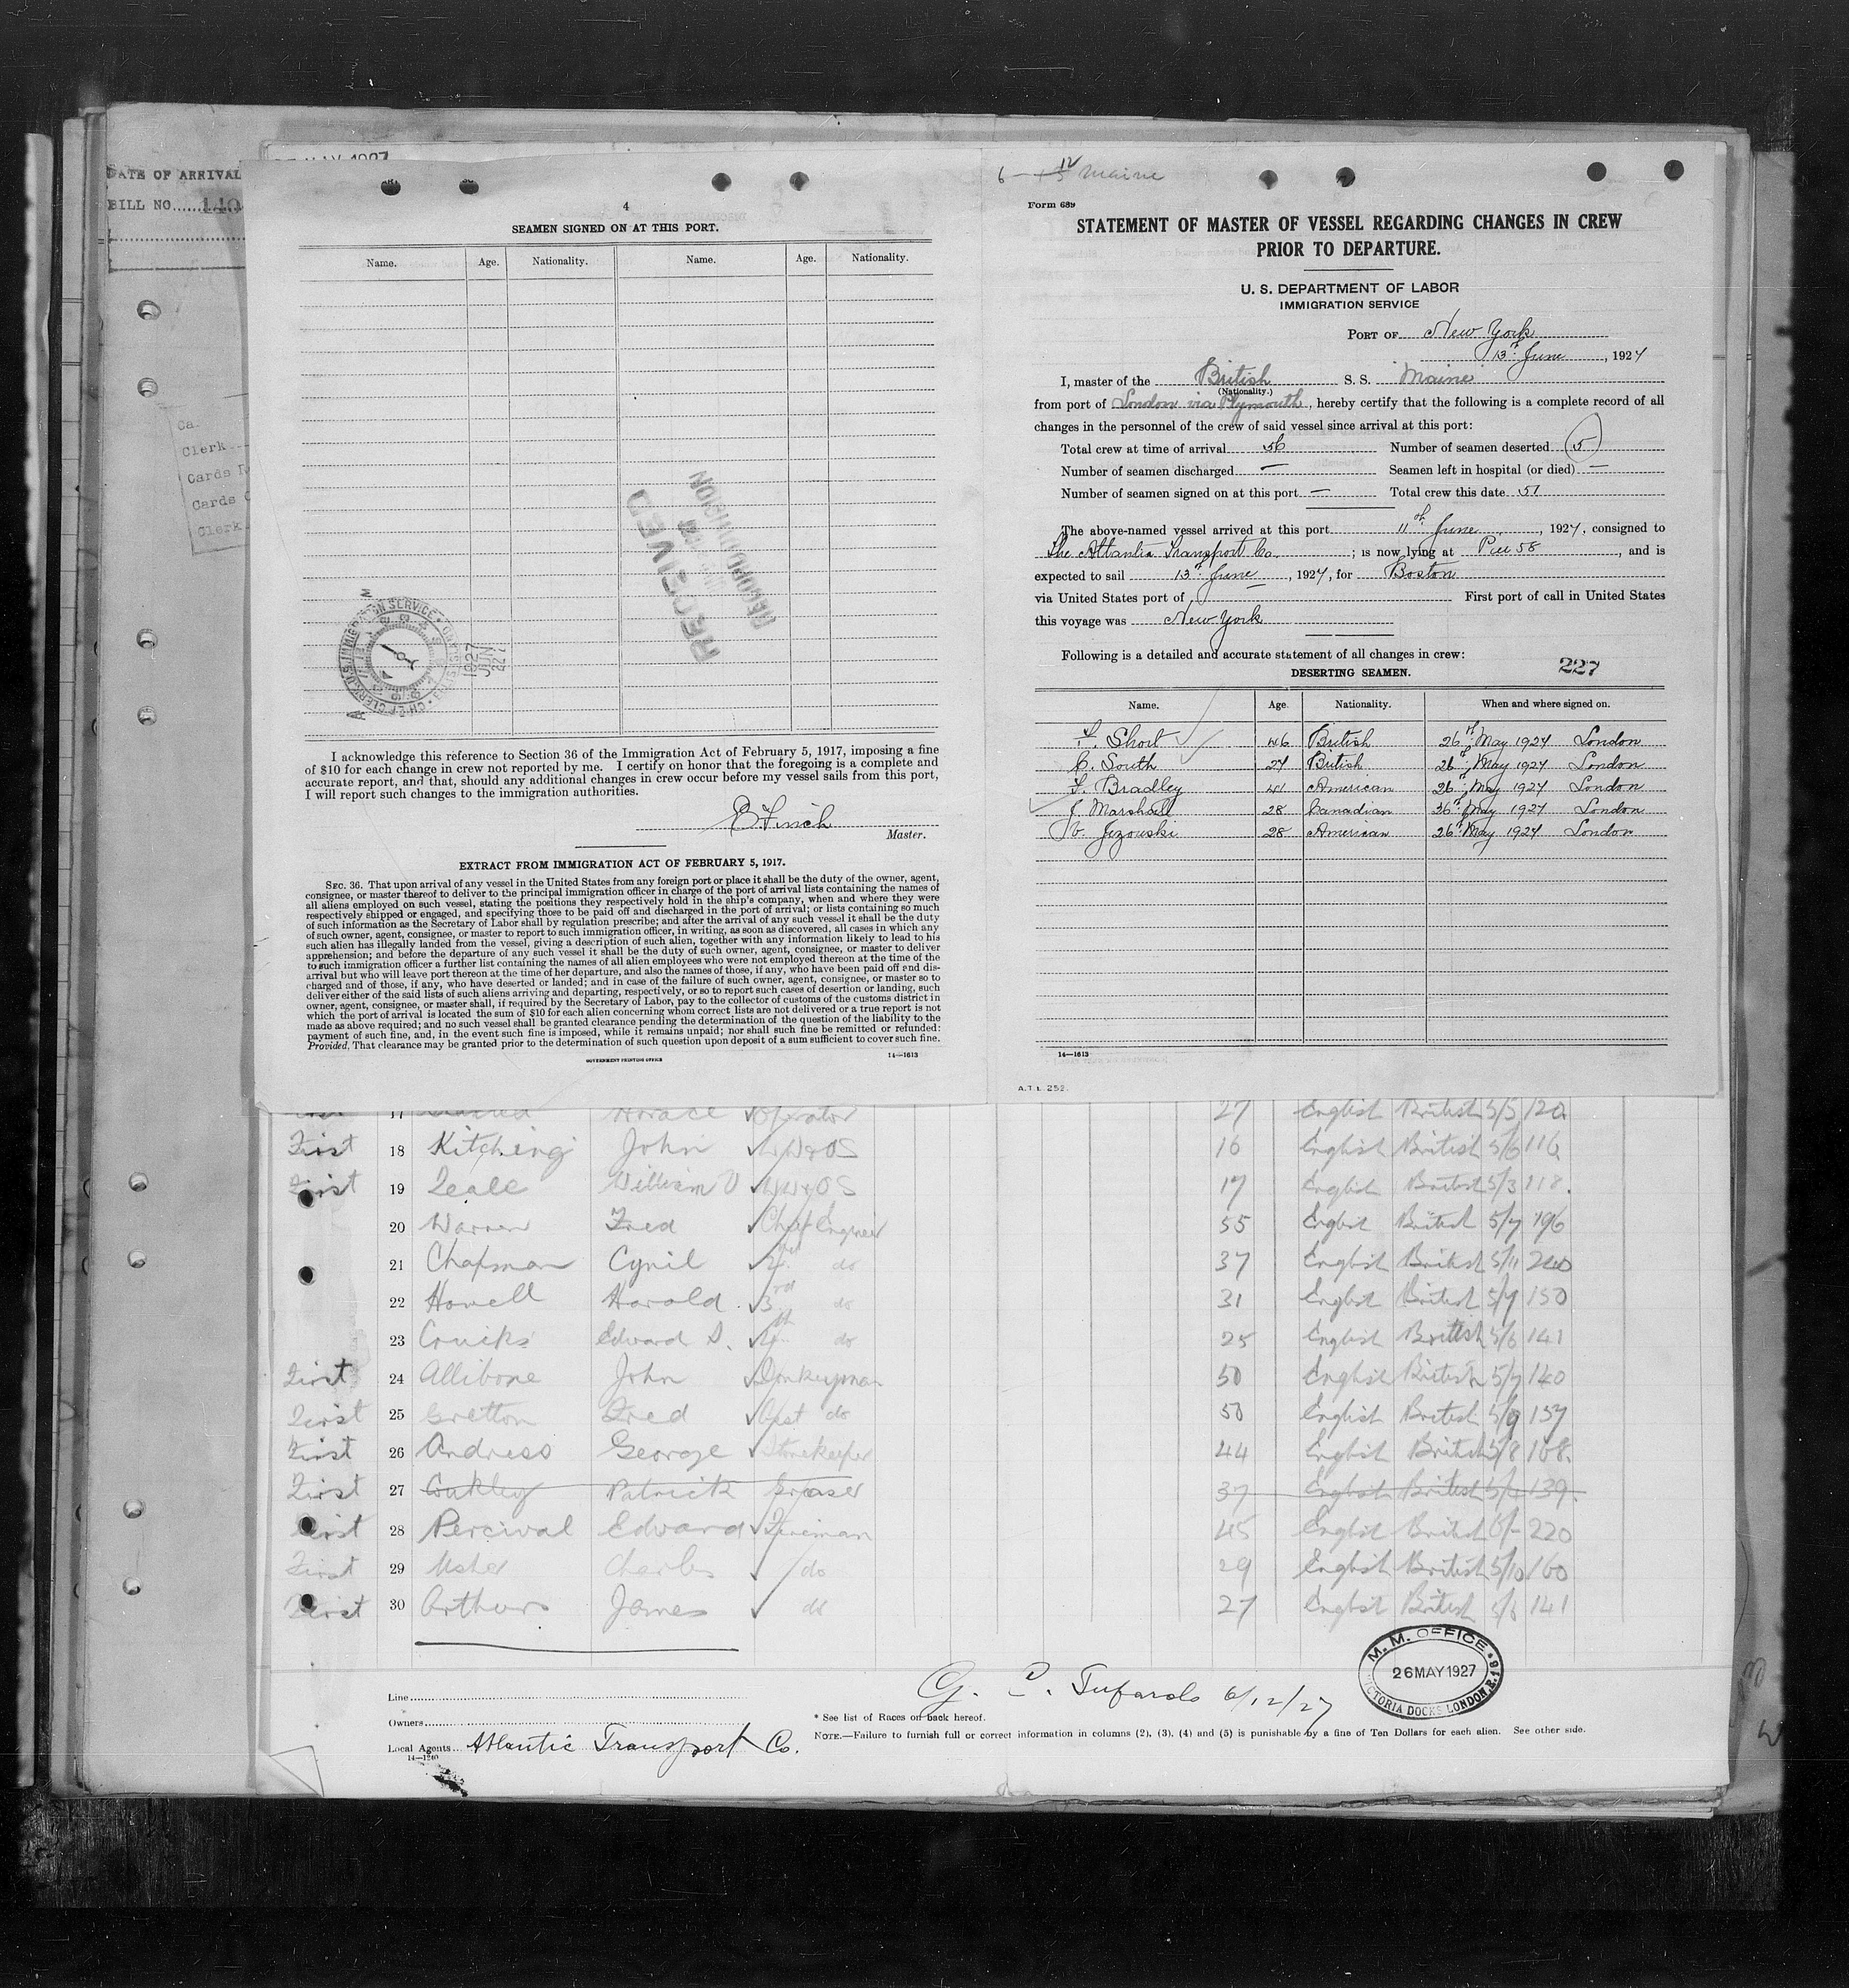 DATE OF ARRIVAL
BILL NO. 140
Clerk
Cards
Cards
Clerk
4
SEAMEN SIGNED ON AT THIS PORT.
Name. Age. Nationality. Name. Age. Nationality.
RECEIVED
RECORD DIVISION
1927 JUN 22
I acknowledge this reference to Section 36 of the Immigration Act of February 5, 1917, imposing a fine
of $10 for each change in crew not reported by me. I certify on honor that the foregoing is a complete and
accurate report, and that, should any additional changes in crew occur before my vessel sails from this port,
I will report such changes to the immigration authorities.
E Finch
Master.
EXTRACT FROM IMMIGRATION ACT OF FEBRUARY 5, 1917.
SEC. 36. That upon arrival of any vessel in the United States from any foreign port or place it shall be the duty of the owner, agent,
consignee, or master thereof to deliver to the principal immigration officer in charge of the port of arrival lists containing the names of
all aliens employed on such vessel, stating the positions they respectively hold in the ship's company, when and where they were
respectively shipped or engaged, and specifying those to be paid off and discharged in the port of arrival; or lists containing so much
of such information as the Secretary of Labor shall by regulation prescribe; and after the arrival of any such vessel it shall be the duty
of such owner, agent, consignee, or master to report to such immigration officer, in writing, as soon as discovered, all cases in which any
such alien has illegally landed from the vessel, giving a description of such alien, together with any information likely to lead to his
apprehension; and before the departure of any such vessel it shall be the duty of such owner, agent, consignee, or master to deliver
to such immigration officer a further list containing the names of all alien employees who were not employed thereon at the time of the
arrival but who will leave port thereon at the time of her departure, and also the names of those, if any, who have been paid off and dis-
charged and of those, if any, who have deserted or landed; and in case of the failure of such owner, agent, consignee, or master so to
deliver either of the said lists of such aliens arriving and departing, respectively, or so to report such cases of desertion or landing, such
owner, agent, consignee, or master shall, if required by the Secretary of Labor, pay to the collector of customs of the customs district in
which the port of arrival is located the sum of $10 for each alien concerning whom correct lists are not delivered or a true report is not
made as above required; and no such vessel shall be granted clearance pending the determination of the question of the liability to the
payment of such fine, and, in the event such fine is imposed, while it remains unpaid; nor shall such fine be remitted or refunded:
Provided, That clearance may be granted prior to the determination of such question upon deposit of a sum sufficient to cover such fine.
GOVERNMENT PRINTING OFFICE 14—1613
6 - 12 Maine
Form 689
STATEMENT OF MASTER OF VESSEL REGARDING CHANGES IN CREW
PRIOR TO DEPARTURE.
U. S. DEPARTMENT OF LABOR
IMMIGRATION SERVICE
PORT OF New York
13th June, 1927
I, master of the British S. S. Maine
(Nationality.)
from port of London via Plymouth, hereby certify that the following is a complete record of all
changes in the personnel of the crew of said vessel since arrival at this port:
Total crew at time of arrival 56 Number of seamen deserted 5
Number of seamen discharged — Seamen left in hospital (or died) —
Number of seamen signed on at this port — Total crew this date 51
The above-named vessel arrived at this port 11th June, 1927, consigned to
The Atlantic Transport Co.; is now lying at Pier 58, and is
expected to sail 13th June, 1927, for Boston
via United States port of First port of call in United States
this voyage was New York
Following is a detailed and accurate statement of all changes in crew:
227
DESERTING SEAMEN.
Name. Age. Nationality. When and where signed on.
Short 46 British 26th May 1927 London
C. South 27 British 26th May 1927 London
F. Bradley 41 American 26th May 1927 London
J. Marshall 28 Canadian 36th May 1927 London
V. Jezouski 28 American 26th May 1927 London
14—1613
A.T.L. 252.
17 Horace Operator 27 English British 5/5 120
First 18 Kitching John 16 English British 5/6 116
First 19 Leale William 17 English British 5/3 118.
20 Warren Fred Chief Engineer 55 English British 5/7 196
21 Chapman Cyril 2nd do 37 English British 5/11 240
22 Howell Harold 3rd do 31 English British 5/7 150
23 Edward D. 4th do 25 English British 5/6 141
First 24 Allibone John Donkeyman 50 English British 5/7 140
First 25 Gretton Fred Asst do 50 English British 5/9 157
First 26 Andress George Storekeeper 44 English British 5/8 168.
First 27 Patrick Greaser 37 English British 139.
First 28 Percival Edward Fireman 45 English British 220
First 29 Usher Charles do 29 English British 5/10 160
First 30 Arthurs James do 27 English British 5/6 141
M. M. OFFICE
26 MAY 1927
VICTORIA DOCKS LONDON, E.16
Line
6/12/27
Owners
* See list of Races on back hereof.
Local Agents Atlantic Transport Co.
NOTE.—Failure to furnish full or correct information in columns (2), (3), (4) and (5) is punishable by a fine of Ten Dollars for each alien. See other side.
14—1240